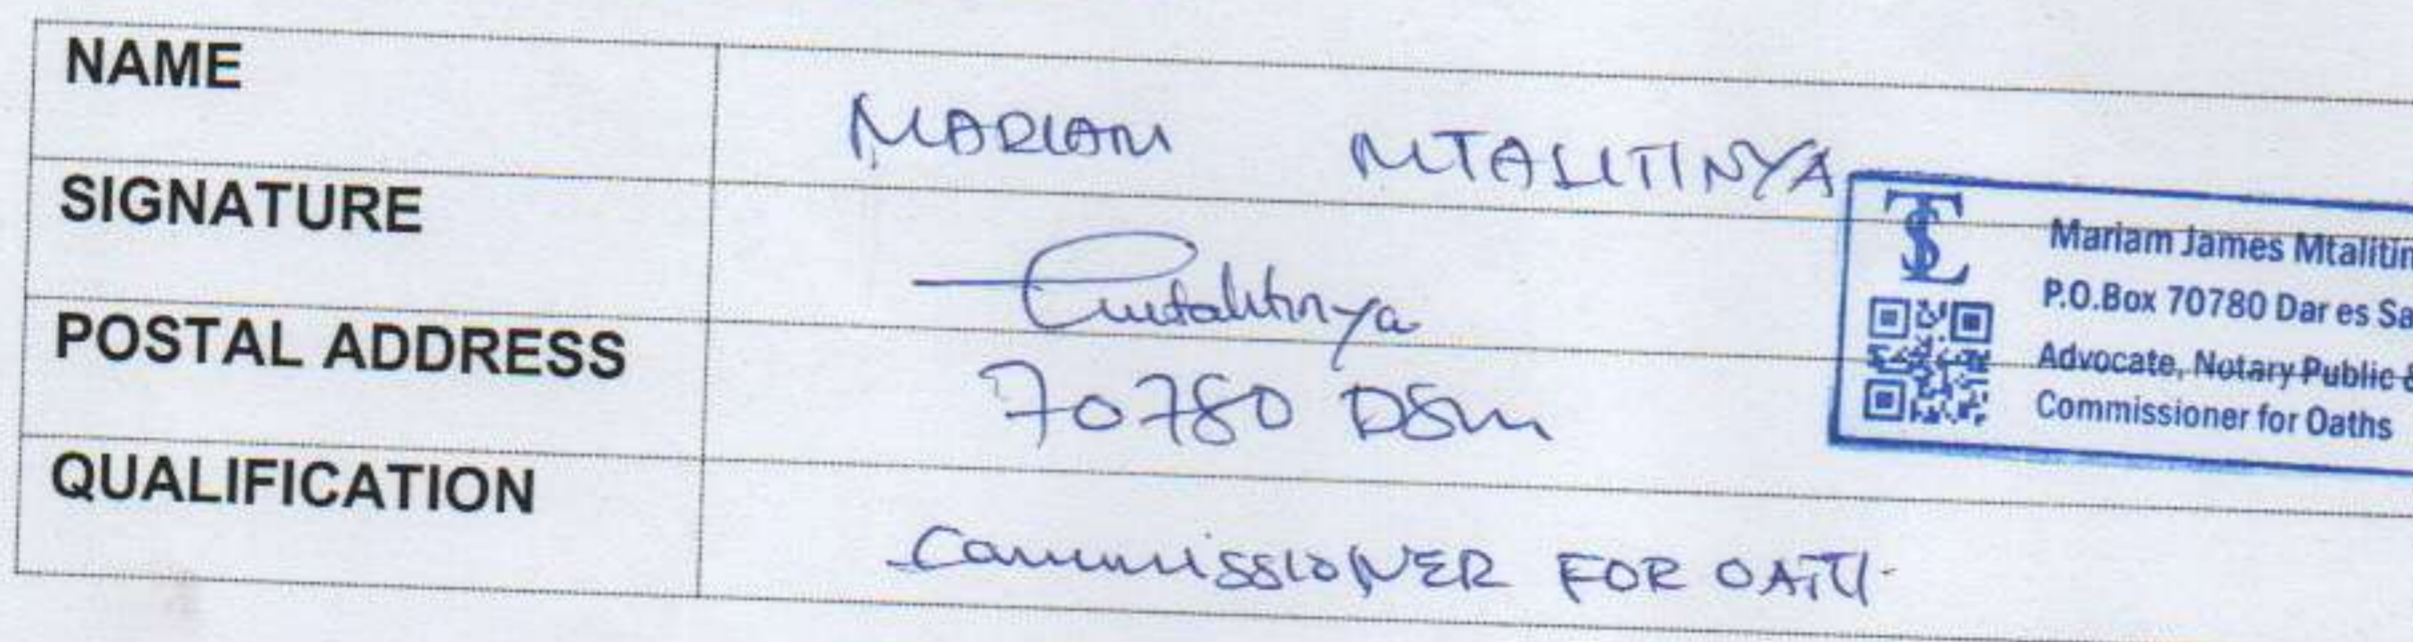 NAME
MARIAM MTALITINYA
SIGNATURE
Mtalitinya
POSTAL ADDRESS
70780 DSM
QUALIFICATION
COMMISSIONER FOR OATH.
TLS
Mariam James Mtalitin
P.O.Box 70780 Dar es Sa
Advocate, Notary Public &
Commissioner for Oaths